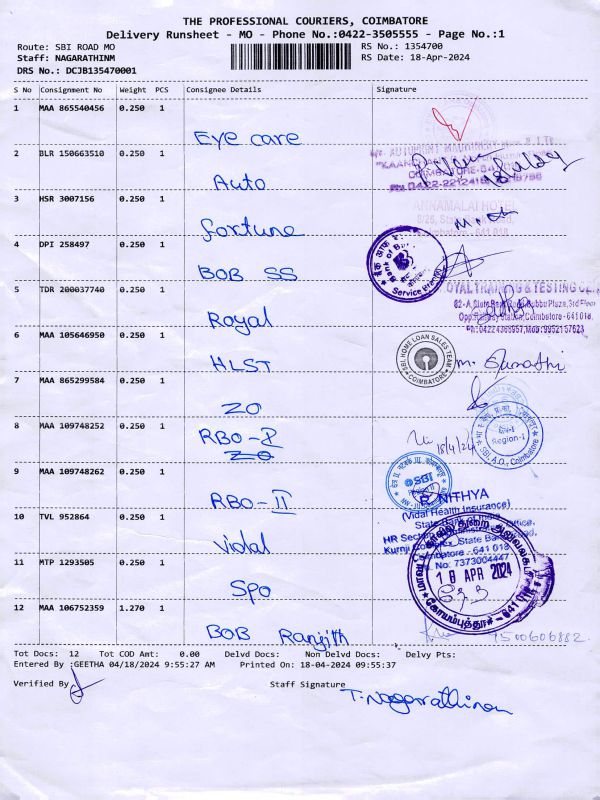 THE PROFESSIONAL COURIERS, COIMBATORE
Delivery Runsheet - MO - Phone No.:0422-3505555 - Page No.:1
Route: SBI ROAD MO RS No.: 1354700
Staff: NAGARATHINM RS Date: 18-Apr-2024
DRS No.: DCJB135470001
S No Consignment No Weight PCS Consignee Details Signature
1 MAA 865540456 0.250 1
Eye care
2 BLR 150663510 0.250 1
Auto
3 HSR 3007156 0.250 1
ANNAMALAI HOTEL
fortune
4 DPI 258497 0.250 1
BOB SS
Service Branch
5 TDR 200037740 0.250 1
TRAINING & TESTING
Royal
6 MAA 105646950 0.250 1
SBI HOME LOAN SALES TEAM
COIMBATORE
HLST
7 MAA 865299584 0.250 1
ZO
8 MAA 109748252 0.250 1
RBO-I
ZO
18/4/24
Region-I
SBI, A.O., Coimbatore
9 MAA 109748262 0.250 1
SBI
RBO-II
P. NITHYA
(Vidal Health Insurance)
10 TVL 952864 0.250 1
Vidal
Coimbatore - 641 018
No: 7373004447
11 MTP 1293505 0.250 1
18 APR 2024
SPO
12 MAA 106752359 1.270 1
கோயம்புத்தூர்-641
BOB Ranjith
7500606882
Tot Docs: 12 Tot COD Amt: 0.00 Delvd Docs: Non Delvd Docs: Delvy Pts:
Entered By :GEETHA 04/18/2024 9:55:27 AM Printed On: 18-04-2024 09:55:37
Verified By Staff Signature
T. Nagarathinam